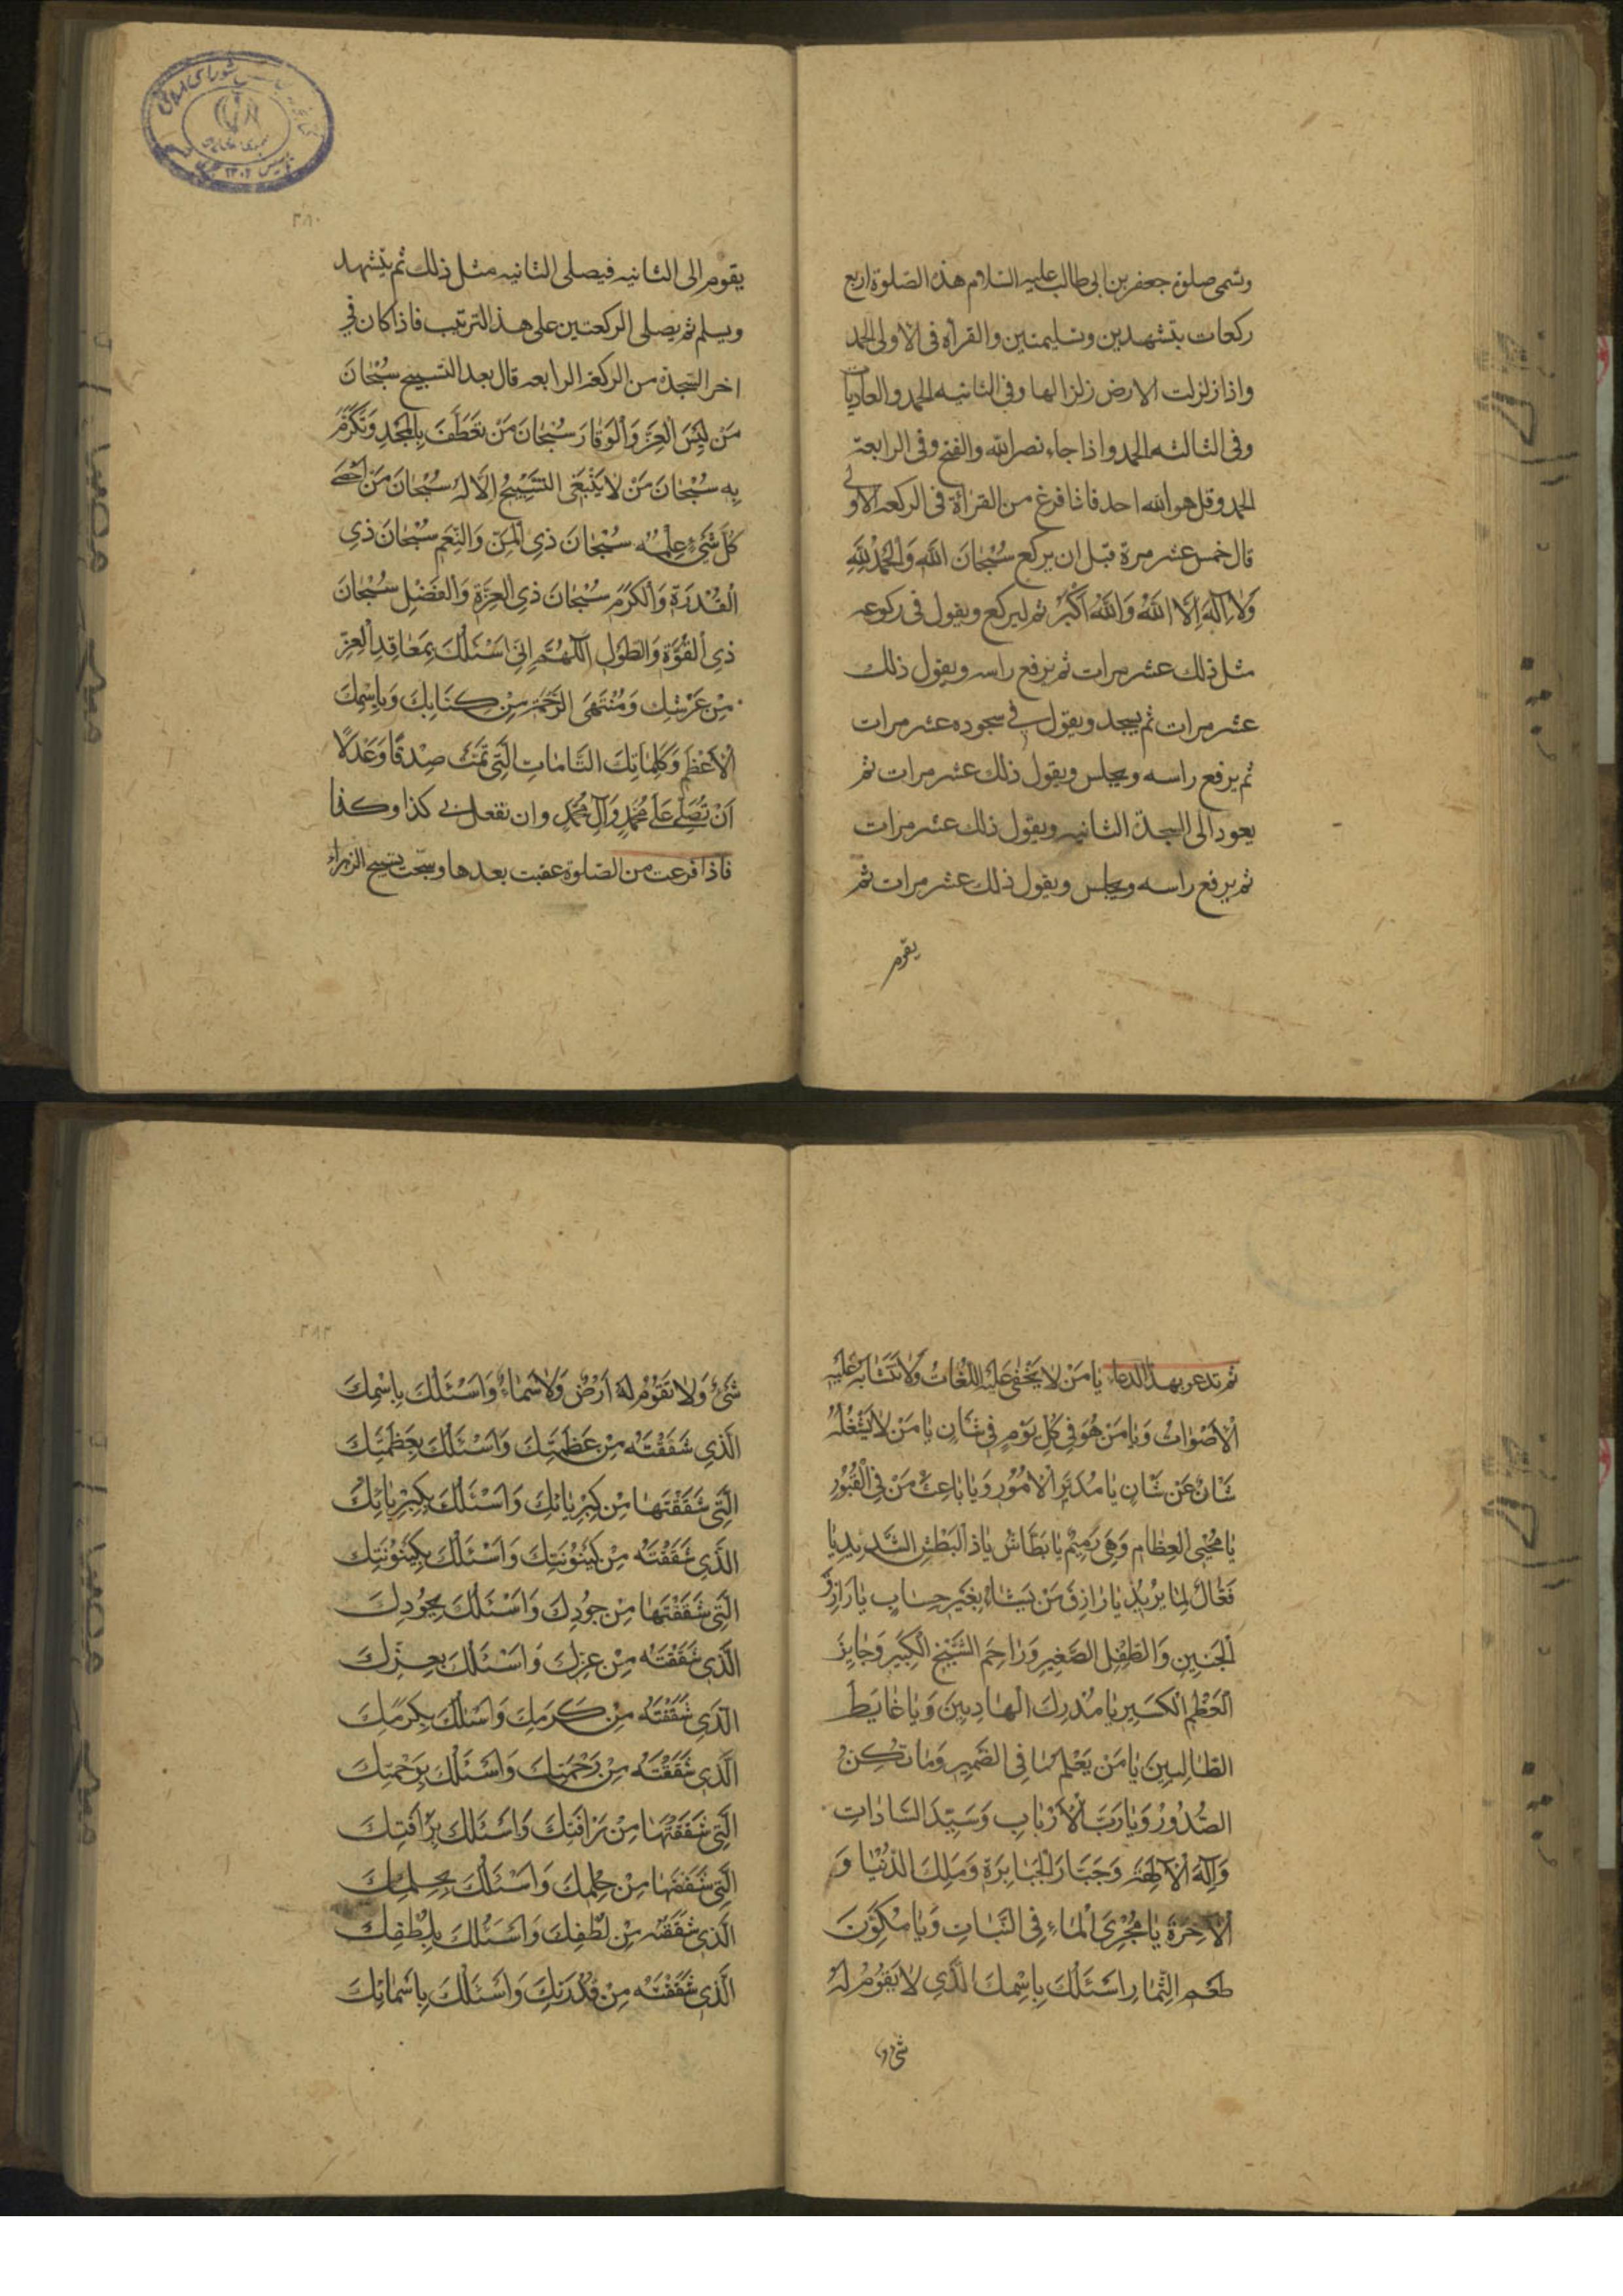 وتسمى صلوة جعفر بن ابى طالب عليه السلام هذه الصلوة اربع
ركعات بتشهدين وتسليمتين والقرأة فى الاولى الحمد
واذا زلزلت الارض زلزالها وفى الثانيه الحمد والعاديات
وفى الثالثه الحمد واذا جاء نصر الله والفتح وفى الرابعة
الحمد وقل هو الله احد فاذا فرغ من القرائة فى الركعه الاولى
قال خمس عشر مرة قبل ان يركع سُبْحٰانَ اللّٰهِ وَالْحَمْدُ لِلّٰهِ
وَلاٰ اِلٰهَ اِلَّا اللّٰهُ وَاللّٰهُ اَكْبَرُ ثم ليركع ويقول فى ركوعه
مثل ذلك عشر مرات ثم يرفع راسه ويقول ذلك
عشر مرات ثم يسجد ويقول فى سجوده عشر مرات
ثم يرفع راسه ويجلس ويقول ذلك عشر مرات ثم
يعود الى السجدة الثانيه ويقول ذلك عشر مرات
ثم يرفع راسه ويجلس ويقول ذلك عشر مرات ثم
يقوم
٣٨٠
يقوم الى الثانيه فيصلى الثانيه مثل ذلك ثم يتشهد
ويسلم ثم يصلى الركعتين على هذا الترتيب فاذا كان فى
اخر السجدة من الركعة الرابعه قال بعد التسبيح سُبْحٰانَ
مَنْ لَبِسَ الْعِزَّ وَالْوَقٰارَ سُبْحٰانَ مَنْ تَعَطَّفَ بِالْمَجْدِ وَتَكَرَّمَ
بِهِ سُبْحٰانَ مَنْ لاٰ يَنْبَغِى التَّسْبِيحُ اِلّاٰ لَهُ سُبْحٰانَ مَنْ اَحْصٰى
كُلَّ شَىْءٍ عِلْمُهُ سُبْحٰانَ ذِى الْمَنِّ وَالنِّعَمِ سُبْحٰانَ ذِى
الْقُدْرَةِ وَالْكَرَمِ سُبْحٰانَ ذِى الْعِزَّةِ وَالْفَضْلِ سُبْحٰانَ
ذِى الْقُوَّةِ وَالطَّوْلِ اَللّٰهُمَّ اِنّى اَسْئَلُكَ بِمَعٰاقِدِ الْعِزِّ
مِنْ عَرْشِكَ وَمُنْتَهَى الرَّحْمَةِ مِنْ كِتٰابِكَ وَبِاِسْمِكَ
الْاَعْظَمِ وَكَلِمٰاتِكَ التّٰامّٰاتِ الَّتِى تَمَّتْ صِدْقًا وَعَدْلًا
اَنْ تُصَلِّىَ عَلٰى مُحَمَّدٍ وَآلِ مُحَمَّدٍ وان تفعل بى كذا وكذا
فاذا فرغت من الصلوة عقبت بعدها وسبحت تسبيح الزهراء
ثم تدعو بهذا الدعاء يٰا مَنْ لاٰ يَخْفٰى عَلَيْهِ اللُّغٰاتُ وَلاٰ تَتَشٰابَهُ عَلَيْهِ
الْاَصْوٰاتُ وَيٰا مَنْ هُوَ فِى كُلِّ يَوْمٍ فِى شَانٍ يٰا مَنْ لاٰ يَشْغَلُهُ
شَانٌ عَنْ شَانٍ يٰا مُدَبِّرَ الْاُمُورِ وَيٰا بٰاعِثَ مَنْ فِى الْقُبُورِ
يٰا مُحْيِىَ الْعِظٰامِ وَهِىَ رَمِيمٌ يٰا بَطّٰاشُ يٰا ذَا الْبَطْشِ الشَّدِيدِ يٰا
فَعّٰالُ لِمٰا يُرِيدُ يٰا رٰازِقَ مَنْ يَشٰاءُ بِغَيْرِ حِسٰابٍ يٰا رٰازِقَ
الْجَنِينِ وَالطِّفْلِ الصَّغِيرِ وَرٰاحِمَ الشَّيْخِ الْكَبِيرِ وَجٰابِرَ
الْعَظْمِ الْكَسِيرِ يٰا مُدْرِكَ الْهٰارِبِينَ وَيٰا غٰايَةَ
الطّٰالِبِينَ يٰا مَنْ يَعْلَمُ مٰا فِى الضَّمِيرِ وَمٰا تُكِنُّ
الصُّدُورُ وَيٰا رَبَّ الْاَرْبٰابِ وَسَيِّدَ السّٰادٰاتِ
وَاِلٰهَ الْآلِهَةِ وَجَبّٰارَ الْجَبٰابِرَةِ وَمَلِكَ الدُّنْيٰا وَ
الْآخِرَةِ يٰا مُجْرِىَ الْمٰاءِ فِى النَّبٰاتِ وَيٰا مُكَوِّنَ
طَعْمِ الثِّمٰارِ اَسْئَلُكَ بِاِسْمِكَ الَّذِى لاٰ يَقُومُ لَهُ
شىء و
٣٨٢
شَىْءٌ وَلاٰ تَقُومُ لَهُ اَرْضٌ وَلاٰ سَمٰاءٌ وَاَسْئَلُكَ بِاِسْمِكَ
الَّذِى شَقَقْتَهُ مِنْ عَظَمَتِكَ وَاَسْئَلُكَ بِعَظَمَتِكَ
الَّتِى شَقَقْتَهٰا مِنْ كِبْرِيٰائِكَ وَاَسْئَلُكَ بِكِبْرِيٰائِكَ
الَّذِى شَقَقْتَهُ مِنْ كَيْنُونَتِكَ وَاَسْئَلُكَ بِكَيْنُونَتِكَ
الَّتِى شَقَقْتَهٰا مِنْ جُودِكَ وَاَسْئَلُكَ بِجُودِكَ
الَّذِى شَقَقْتَهُ مِنْ عِزِّكَ وَاَسْئَلُكَ بِعِزِّكَ
الَّذِى شَقَقْتَهُ مِنْ كَرَمِكَ وَاَسْئَلُكَ بِكَرَمِكَ
الَّذِى شَقَقْتَهُ مِنْ رَحْمَتِكَ وَاَسْئَلُكَ بِرَحْمَتِكَ
الَّتِى شَقَقْتَهٰا مِنْ رَاْفَتِكَ وَاَسْئَلُكَ بِرَاْفَتِكَ
الَّتِى شَقَقْتَهٰا مِنْ حِلْمِكَ وَاَسْئَلُكَ بِحِلْمِكَ
الَّذِى شَقَقْتَهُ مِنْ لُطْفِكَ وَاَسْئَلُكَ بِلُطْفِكَ
الَّذِى شَقَقْتَهُ مِنْ قُدْرَتِكَ وَاَسْئَلُكَ بِاَسْمٰائِكَ